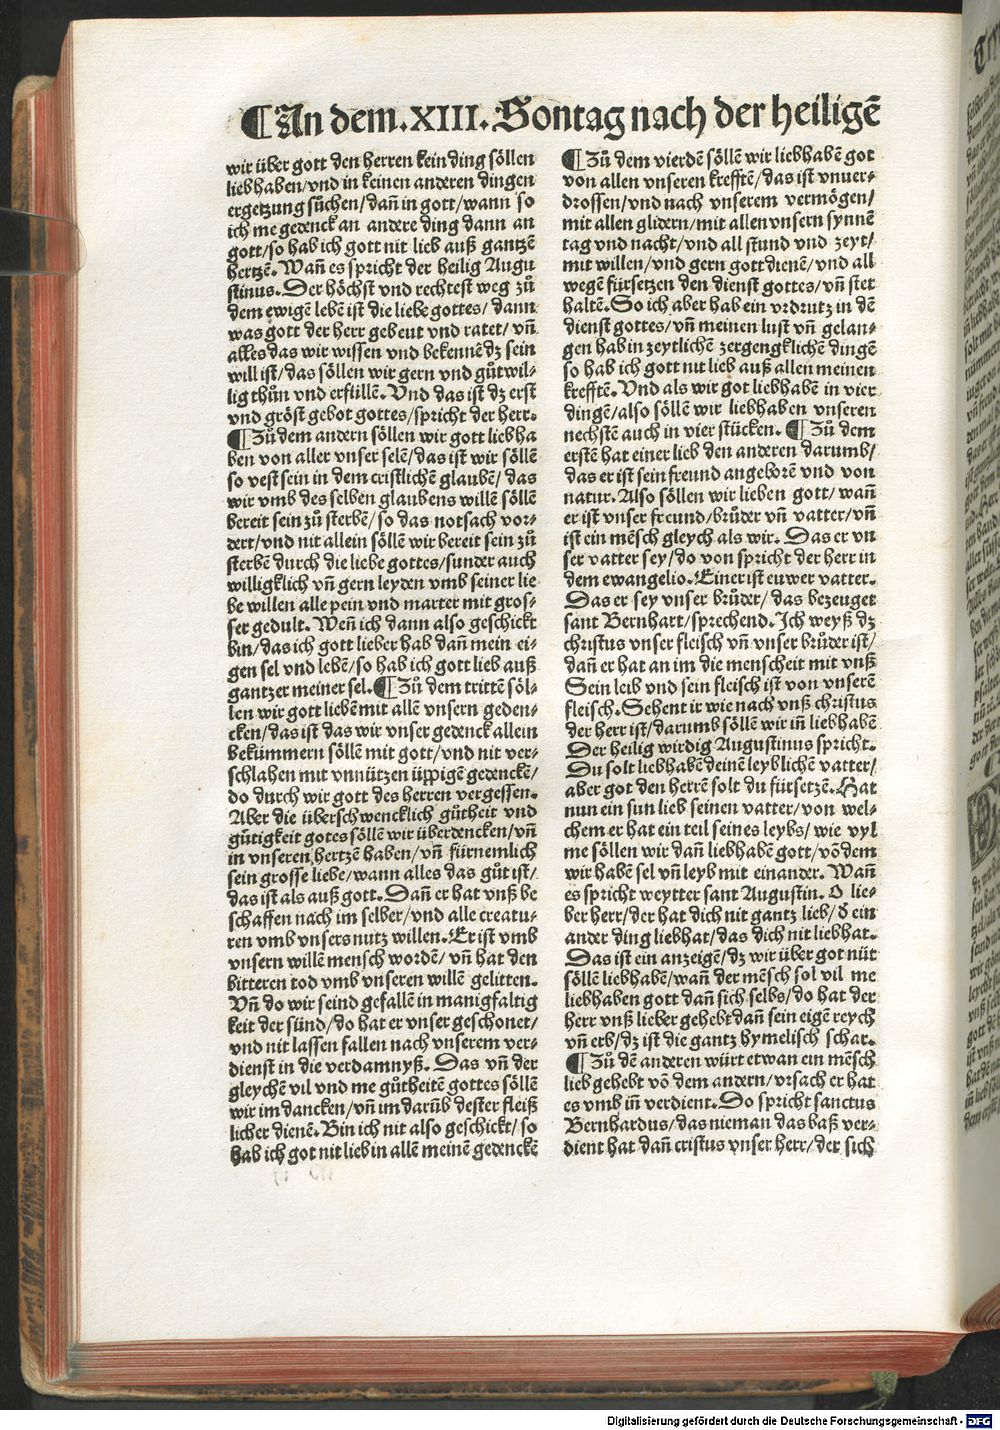 ¶An dem.XIII.Sontag nach der heiligē
wir über gott den herren kein ding söllen
lieb haben/vnd in keinen anderen dingen
ergetzung sůchen/dañ in gott/wann so
ich me gedenck an andere ding dann an
gott/so hab ich gott nit lieb auß gantzē
hertzē.Wañ es spricht der heilig Augu
stinus.Der höchst vnd rechtest weg zů
dem ewigē lebē ist die liebe gottes/dann
was gott der herr gebeut vnd ratet/vñ
alles das wir wissen vnd bekennē dz sein
will ist/das söllen wir gern vnd gůtwil⸗
lig thůn vnd erfüllē.Vnd das ist dz erst
vnd gröst gebot gottes/spricht der herr.
¶Zů dem andern söllen wir gott liebha
ben von aller vnser selē/das ist wir söllē
so vest sein in dem cristlichē glaubē/das
wir vmb des selben glaubens willē söllē
bereit sein zů sterbē/so das notsach vor⸗
dert/vnd nit allein söllē wir bereit sein zů
sterbē durch die liebe gottes/sunder auch
willigklich vñ gern leyden vmb seiner lie
be willen alle pein vnd marter mit gros⸗
ser gedult.Weñ ich dann also geschickt
bin/das ich gott lieber hab dañ mein ei⸗
gen sel vnd lebē/so hab ich gott lieb auß
gantzer meiner sel.¶Zů dem tritten söl⸗
len wir gott liebē mit allē vnsern geden⸗
cken/das ist das wir vnser gedenck allein
bekümmern söllē mit gott/vnd nit ver⸗
schlahen mit vnnützen üppigē gedenckē/
do durch wir gott des herren vergessen.
Aber die überschwencklich gůtheit vnd
gütigkeit gotes söllē wir überdencken/vñ
in vnseren hertzē haben/vñ fürnemlich
sein grosse liebe/wann alles das gůt ist/
das ist als auß gott.Dañ er hat vnß be
schaffen nach im selber/vnd alle creatu⸗
ren vmb vnsers nutz willen.Er ist vmb
vnsern willē mensch wordē/vñ hat den
bitteren tod vmb vnseren willē gelitten.
Vñ do wir seind gefallē in manigfaltig
keit der sünd/do hat er vnser geschonet/
vnd nit lassen fallen nach vnserem ver⸗
dienst in die verdamnyß.Das vñ der
gleychē vil vnd me gůtheitē gottes söllē
wir im dancken/vñ im darūb dester fleiß
licher dienē.Bin ich nit also geschickt/so
hab ich got nit lieb in allē meinē gedenckē
¶Zů dem vierdē söllē wir liebhabē got
von allen vnseren krefftē/das ist vnuer⸗
drossen/vnd nach vnserem vermögen/
mit allen glidern/mit allen vnsern synnē
tag vnd nacht/vnd all stund vnd zeyt/
mit willen/vnd gern gott dienē/vnd all
wegē fürsetzen den dienst gottes/vñ stet
haltē.So ich aber hab ein vrdrutz in dē
dienst gottes/vñ meinen lust vñ gelan⸗
gen hab in zeytlichē zergengklichē dingē
so hab ich gott nit lieb auß allen meinen
krefftē.Vnd als wir got liebhabē in vier
dingē/also söllē wir liebhaben vnseren
nechstē auch in vier stücken.¶Zů dem
erstē hat einer lieb den anderen darumb/
das er ist sein freund angeborē vnd von
natur.Also söllen wir lieben gott/wañ
er ist vnser freund/brůder vñ vatter/vñ
ist ein mēsch gleych als wir.Das er vn
ser vatter sey/do von spricht der herr in
dem ewangelio.Einer ist euwer vatter.
Das er sey vnser brůder/das bezeuget
sant Bernhart/sprechend.Ich weyß dz
christus vnser fleisch vñ vnser brůder ist/
dañ er hat an im die menscheit mit vnß
Sein leib vnd sein fleisch ist von vnserē
fleisch.Sehent ir wie nach vnß christus
der herr ist/darumb söllē wir iñ liebhabē
Der heilig wirdig Augustinus spricht.
Du solt liebhabē deinē leyblichē vatter/
aber got den herrē solt du fürsetzē.Hat
nun ein sun lieb seinen vatter/von wel⸗
chem er hat ein teil seines leybs/wie vyl
me söllen wir dañ liebhabē gott/vō dem
wir habē sel vñ leyb mit einander.Wañ
es spricht weytter sant Augustin.O lie⸗
ber herr/der hat dich nit gantz lieb/ð ein
ander ding liebhat/das dich nit liebhat.
Das ist ein anzeigē/dz wir über got nüt
söllē liebhabē/wañ der mēsch sol vil me
liebhaben gott dañ sich selbs/do hat der
herr vnß lieber gehebt dañ sein eigē reych
vñ erb/dz ist die gantz hymelisch schar.
¶Zů dē anderen würt etwan ein mēsch
lieb gehebt vō dem andern/vrsach er hat
es vmb iñ verdient.So spricht sanctus
Bernhardus/das nieman das baß ver⸗
dient hat dañ cristus vnser herr/der sich
Digitalisierung gefördert durch die Deutsche Forschungsgemeinschaft - DFG